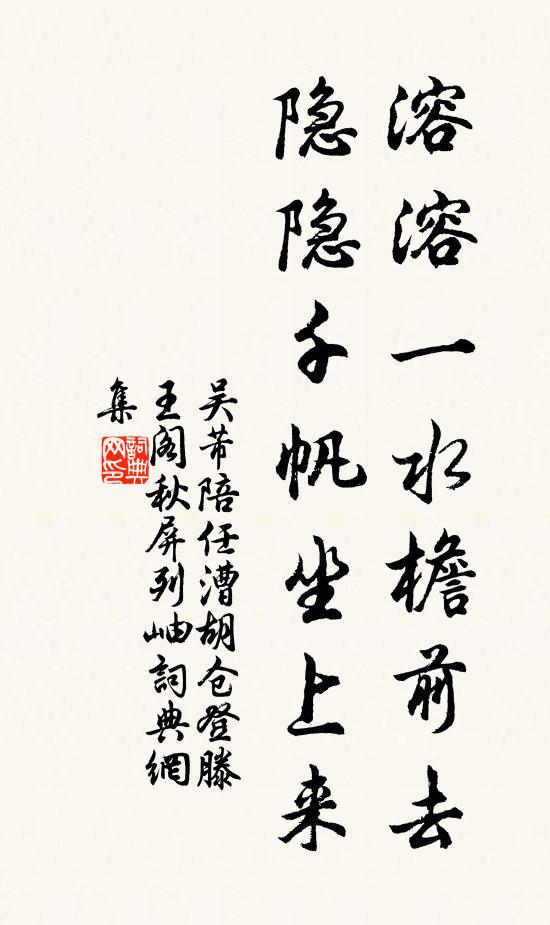 溶溶一水檐前去
隐隐千帆坐上来
吴芾陪任漕胡仓登滕
王阁秋屏列岫詞典網
集
詞典
网印